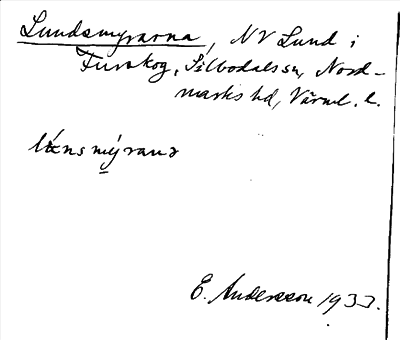 Lundsmyrarna, NV Lund i
Furskog, Silbodals sn, Nord-
marks hd, Värml. l.
E. Andersson 1933.